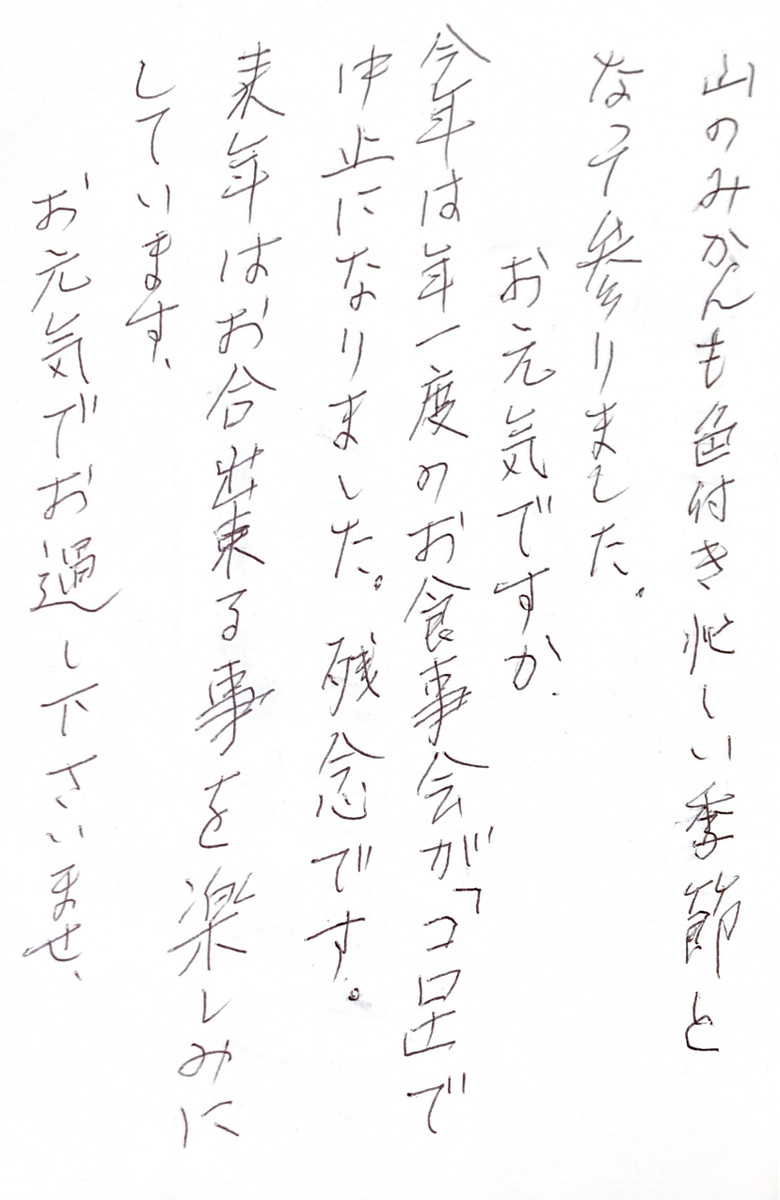 山のみかんも色付き忙しい季節と
なって参りました。
お元気ですか.
今年は年一度のお食事会が「コロナ」で
中止になりました。残念です。
来年はお合出来る事を楽しみに
しています、
お元気でお過し下さいませ、